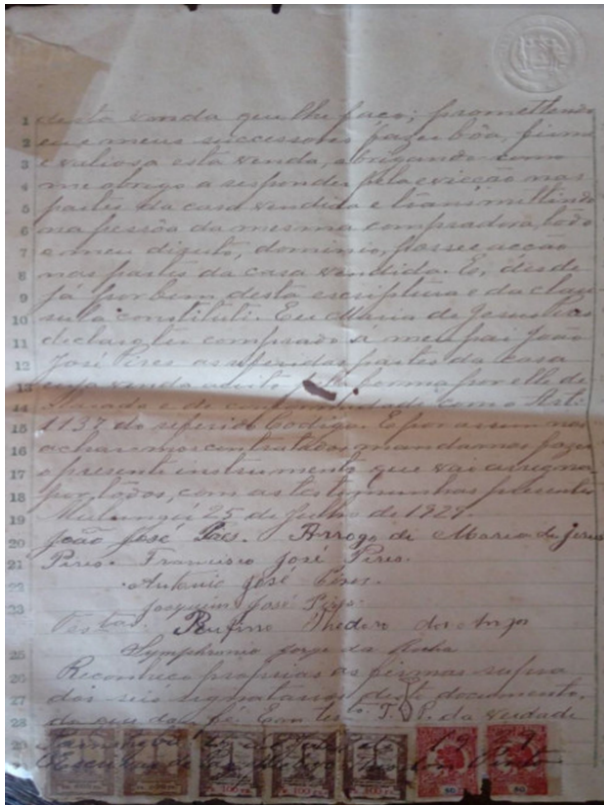 1 desta venda que lhe faço; promettendo
2 eu e meus successores fazer bôa, firme
3 e valiosa esta venda, obrigando como
4 me obrigo a responder pela evicção nas
5 partes da casa vendida e transmittindo
6 na pessôa da mesma compradora, todo
7 o meu direito, dominio, posse e acção
8 nas partes da casa vendida. E, desde
9 já por bem desta escriptura e da clau-
10 sula constituti. Eu Maria de Jesus
11 declaro ter comprado á meu pai João
12 José Pires as referidas partes da casa
13 cuja venda forma por elle de
14 e de conformidade com o Art.
15 1132 do referido codigo. E por assim nos
16 acharmos contratados mandamos fazer
17 o presente instrumento que vai assigna
18 por todos, com as testemunhas presentes
19 Mulungú 25 de Julho de 1929.
20 João José Pires. Arrogo di Maria de Jesus
21 Pires. Francisco José Pires.
Antonio José Pires.
23 Joaquim José Pires
Testas. Rufino Theodoro dos Anjos
25 Symphronio Jorge da Rocha
26 Reconheço proprias as firmas supra
27 dos seis signatarios deste documento,
28 do que dou fé. Em test. da verdade